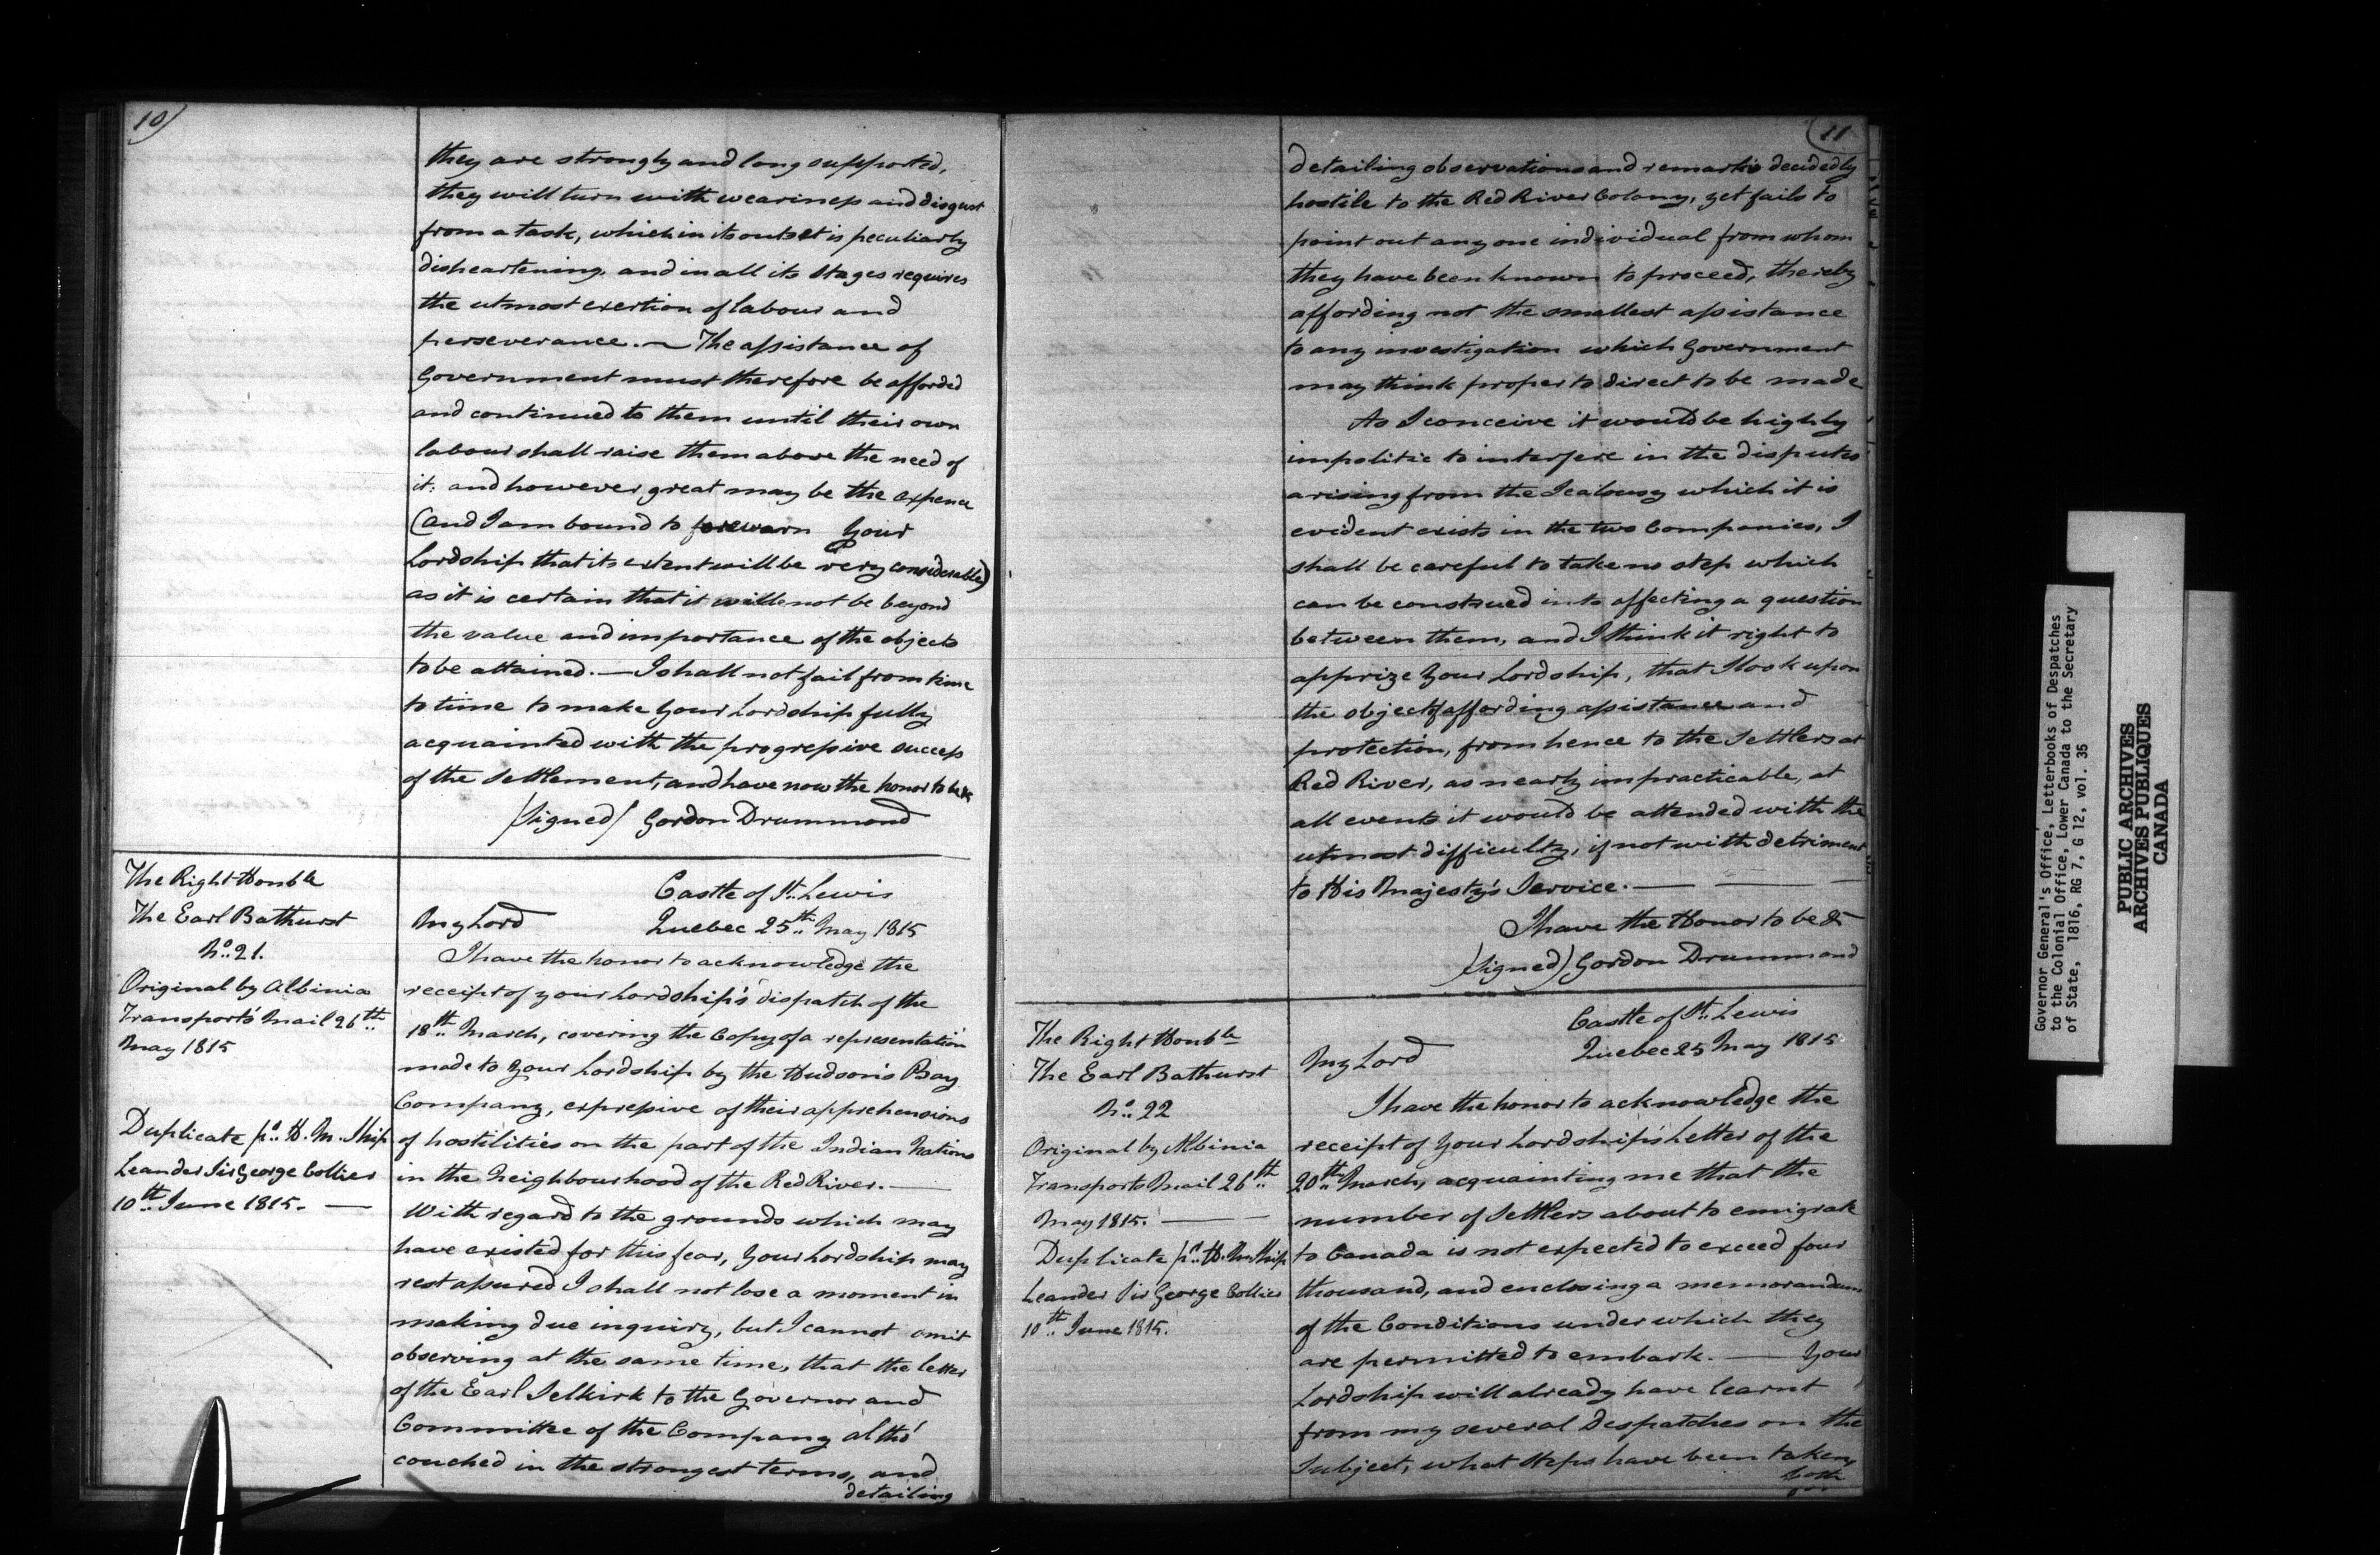 10)
they are strongly and long supported,
they will turn with weariness and disgust
from a task, which in its outset is peculiarly
disheartening, and in all its stages requires
the utmost exertion of labour and
perseverance. — The assistance of
Government must therefore be afforded
and continued to them until their own
labour shall raise them above the need of
it; and however great may be the expence
(and I am bound to forewarn Your
Lordship that its extent will be very considerable)
as it is certain that it will not be beyond
the value and importance of the objects
to be attained. — I shall not fail from time
to time to make Your Lordship fully
acquainted with the progressive success
of the Settlement, and have now the honor to be &c
(Signed) Gordon Drummond
The Right Honble
The Earl Bathurst
No. 21.
Original by Albinia
Transport's Mail 26th
May 1815
Duplicate pr. H. M. Ship
Leander Sir George Collier
10th June 1815. —
Castle of St. Lewis
My Lord Quebec 25th May 1815
I have the honor to acknowledge the
receipt of your Lordship's dispatch of the
18th March, covering the Copy of a representation
made to Your Lordship by the Hudson's Bay
Company, expressive of their apprehensions
of hostilities on the part of the Indian Nations
in the Neighbourhood of the Red River. —
With regard to the grounds which may
have existed for this fear, Your Lordship may
rest assured I shall not lose a moment in
making due inquiry, but I cannot omit
observing at the same time, that the letter
of the Earl Selkirk to the Governor and
Committee of the Company altho'
couched in the strongest terms, and
detailing
11
detailing observations and remarks decidedly
hostile to the Red River Colony, yet fails to
point out any one individual from whom
they have been known to proceed, thereby
affording not the smallest assistance
to any investigation which Government
may think proper to direct to be made
As I conceive it would be highly
impolitic to interfere in the disputes
arising from the Jealousy which it is
evident exists in the two Companies, I
shall be careful to take no step which
can be construed into affecting a question
between them, and I think it right to
apprize Your Lordship, that I look upon
the object of affording assistance and
protection, from hence to the Settlers at
Red River, as nearly impracticable, at
all events it would be attended with the
utmost difficulty, if not with detriment
to His Majesty's Service. —
I have the Honor to be &c
(Signed) Gordon Drummond
The Right Honble
The Earl Bathurst
No. 22
Original by Albinia
Transports Mail 26th
May 1815. —
Duplicate pr. H. M. Ship
Leander Sir George Collier
10th June 1815.
Castle of St. Lewis
My Lord Quebec 25 May 1815
I have the honor to acknowledge the
receipt of Your Lordship's Letter of the
20th March, acquainting me that the
number of Settlers about to emigrate
to Canada is not expected to exceed four
thousand, and enclosing a memorandum
of the Conditions under which they
are permitted to embark. — Your
Lordship will already have learnt
from my several Despatches on the
Subject, what Steps have been taken,
both
Governor General's Office, Letterbooks of Despatches
to the Colonial Office, Lower Canada to the Secretary
of State, 1816, RG 7, G 12, vol. 35
PUBLIC ARCHIVES
ARCHIVES PUBLIQUES
CANADA